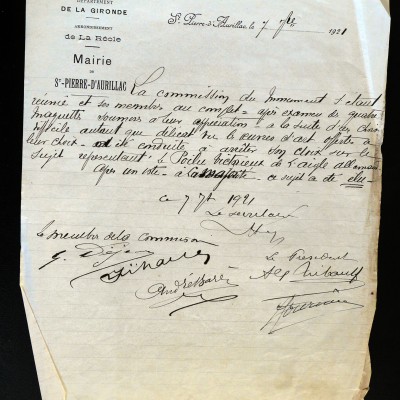 DÉPARTEMENT
DE LA GIRONDE
ARRONDISSEMENT
DE La Réole
Mairie
DE
St-PIERRE-D'AURILLAC
St Pierre-d'Aurillac le 7 7bre 1921
La commission du Monument s'étant
réunie et ses membres au complet - après examen de quatre
maquettes soumises à leur appréciation - à la suite d'un choix
difficile autant que délicat vu les œuvres d'art offertes à
leur choix - a été conduite à arrêter son choix sur le
sujet représentant le Poilu victorieux de l'aigle allemand
Après un vote - à la majorité - ce sujet a été élu -
ce 7 7bre 1921
Le secrétaire
Les membres de la commission
Le Président
G. Déjean
André Baré